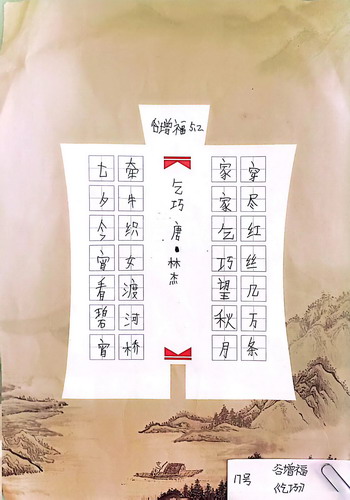 谷增福 5.2
乞巧 唐·林杰
七夕今宵看碧宵
牵牛织女渡河桥
家家乞巧望秋月
穿尽红丝几万条
17号
谷增福
《乞巧》